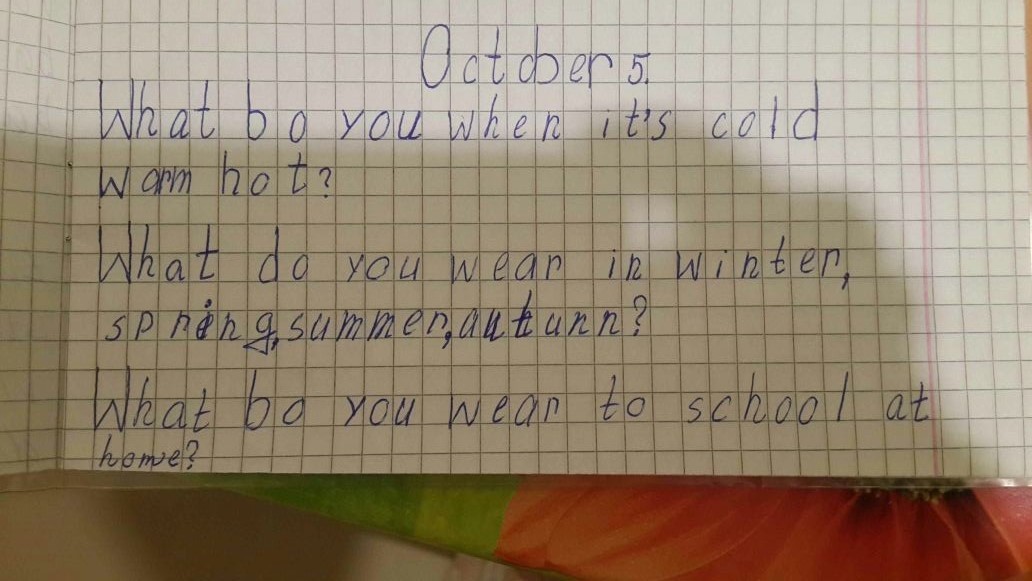 October 5.
What bo you when it's cold
warm hot?
What do you wear in winter,
spring,summer,autunn?
What bo you wear to school at
home?